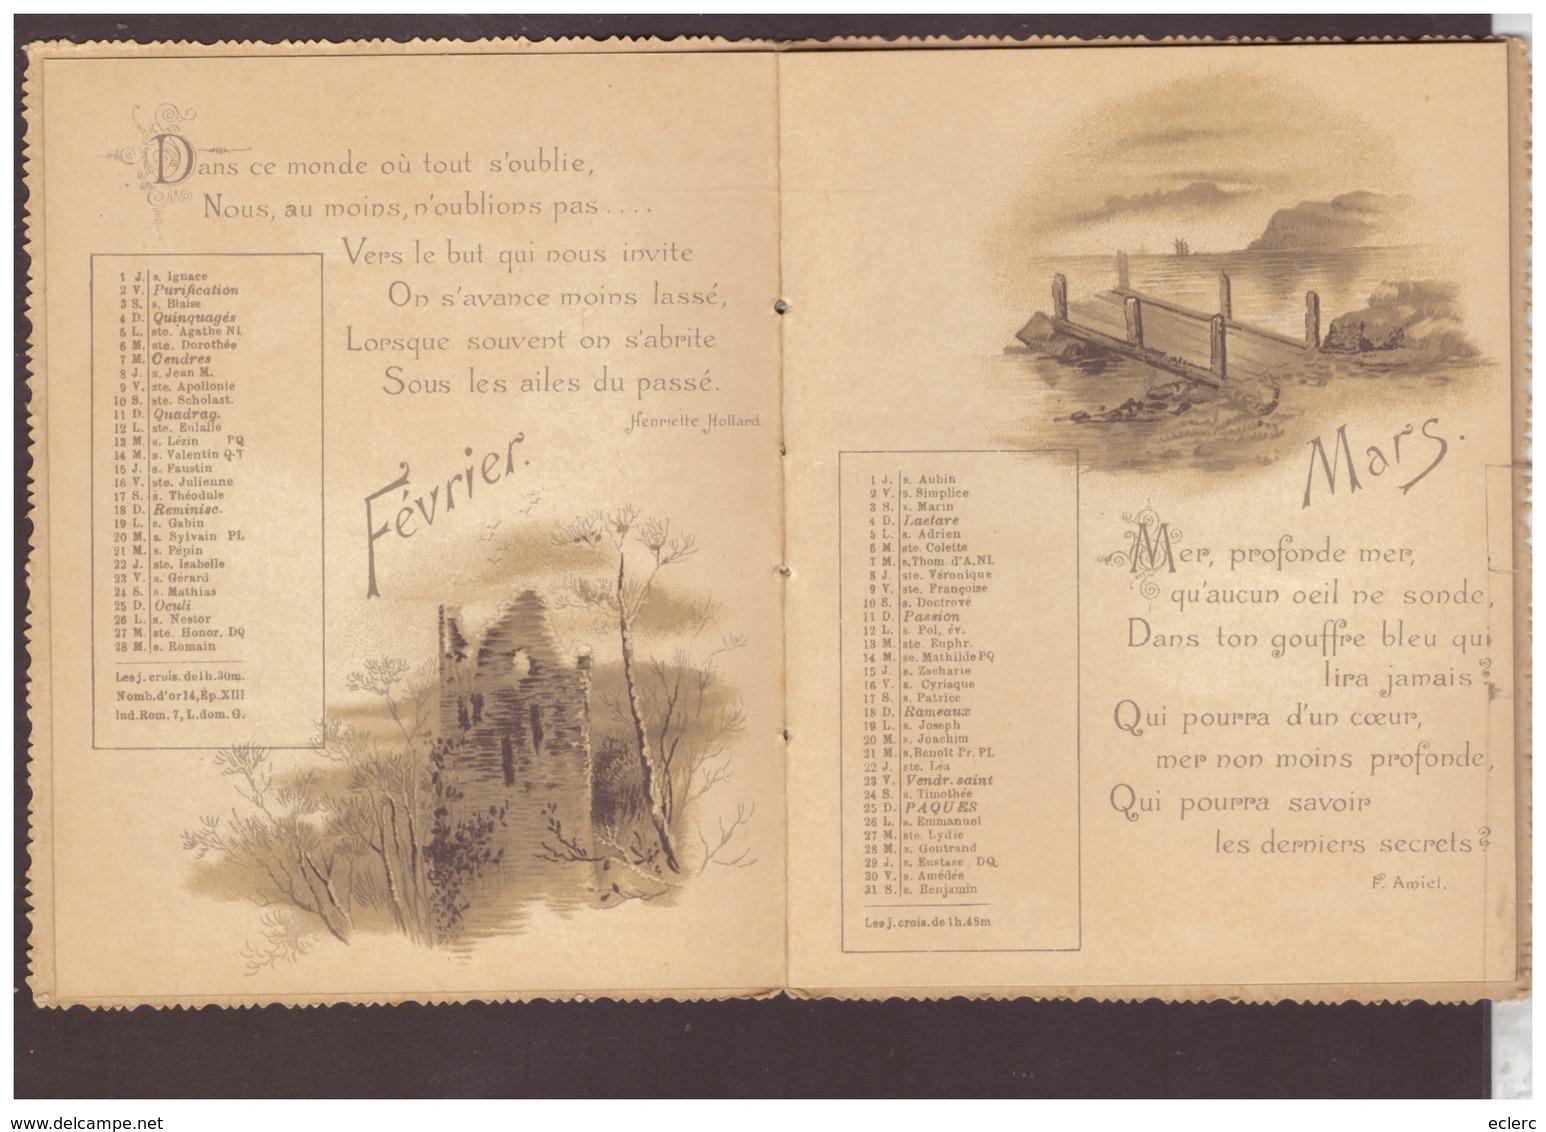 Dans ce monde où tout s'oublie,
Nous, au moins, n'oublions pas....
Vers le but qui nous invite
On s'avance moins lassé,
Lorsque souvent on s'abrite
Sous les ailes du passé.
Henriette Hollard.
Février.
1 J. s. Ignace
2 V. Purification
3 S. s. Blaise
4 D. Quinquagés
5 L. ste. Agathe NL
6 M. ste. Dorothée
7 M. Cendres
8 J. s. Jean M.
9 V. ste. Apollonie
10 S. ste. Scholast.
11 D. Quadrag.
12 L. ste. Eulalie
13 M. s. Lézin PQ
14 M. s. Valentin Q-T
15 J. s. Faustin
16 V. ste. Julienne
17 S. s. Théodule
18 D. Reminisc.
19 L. s. Gabin
20 M. s. Sylvain PL
21 M. s. Pépin
22 J. ste. Isabelle
23 V. s. Gérard
24 S. s. Mathias
25 D. Oculi
26 L. s. Nestor
27 M. ste. Honor. DQ
28 M. s. Romain
Les j. crois. de 1h. 30m.
Nomb. d'or 14, Ép. XIII
Ind. Rom. 7, L. dom. G.
Mars.
1 J. s. Aubin
2 V. s. Simplice
3 S. s. Marin
4 D. Laetare
5 L. s. Adrien
6 M. ste. Colette
7 M. s. Thom. d'A. NL
8 J. ste. Véronique
9 V. ste. Françoise
10 S. s. Doctrove
11 D. Passion
12 L. s. Pol, év.
13 M. ste. Euphr.
14 M. se. Mathilde PQ
15 J. s. Zacharie
16 V. s. Cyriaque
17 S. s. Patrice
18 D. Rameaux
19 L. s. Joseph
20 M. s. Joachim
21 M. s. Benoît Pr. PL
22 J. ste. Léa
23 V. Vendr. saint
24 S. s. Timothée
25 D. PAQUES
26 L. s. Emmanuel
27 M. ste. Lydie
28 M. s. Gontrand
29 J. s. Eustase DQ
30 V. s. Amédée
31 S. s. Benjamin
Les j. crois. de 1h. 48m
Mer, profonde mer,
qu'aucun oeil ne sonde,
Dans ton gouffre bleu qui
lira jamais?
Qui pourra d'un cœur,
mer non moins profonde,
Qui pourra savoir
les derniers secrets?
F. Amiel.
www.delcampe.net
eclerc